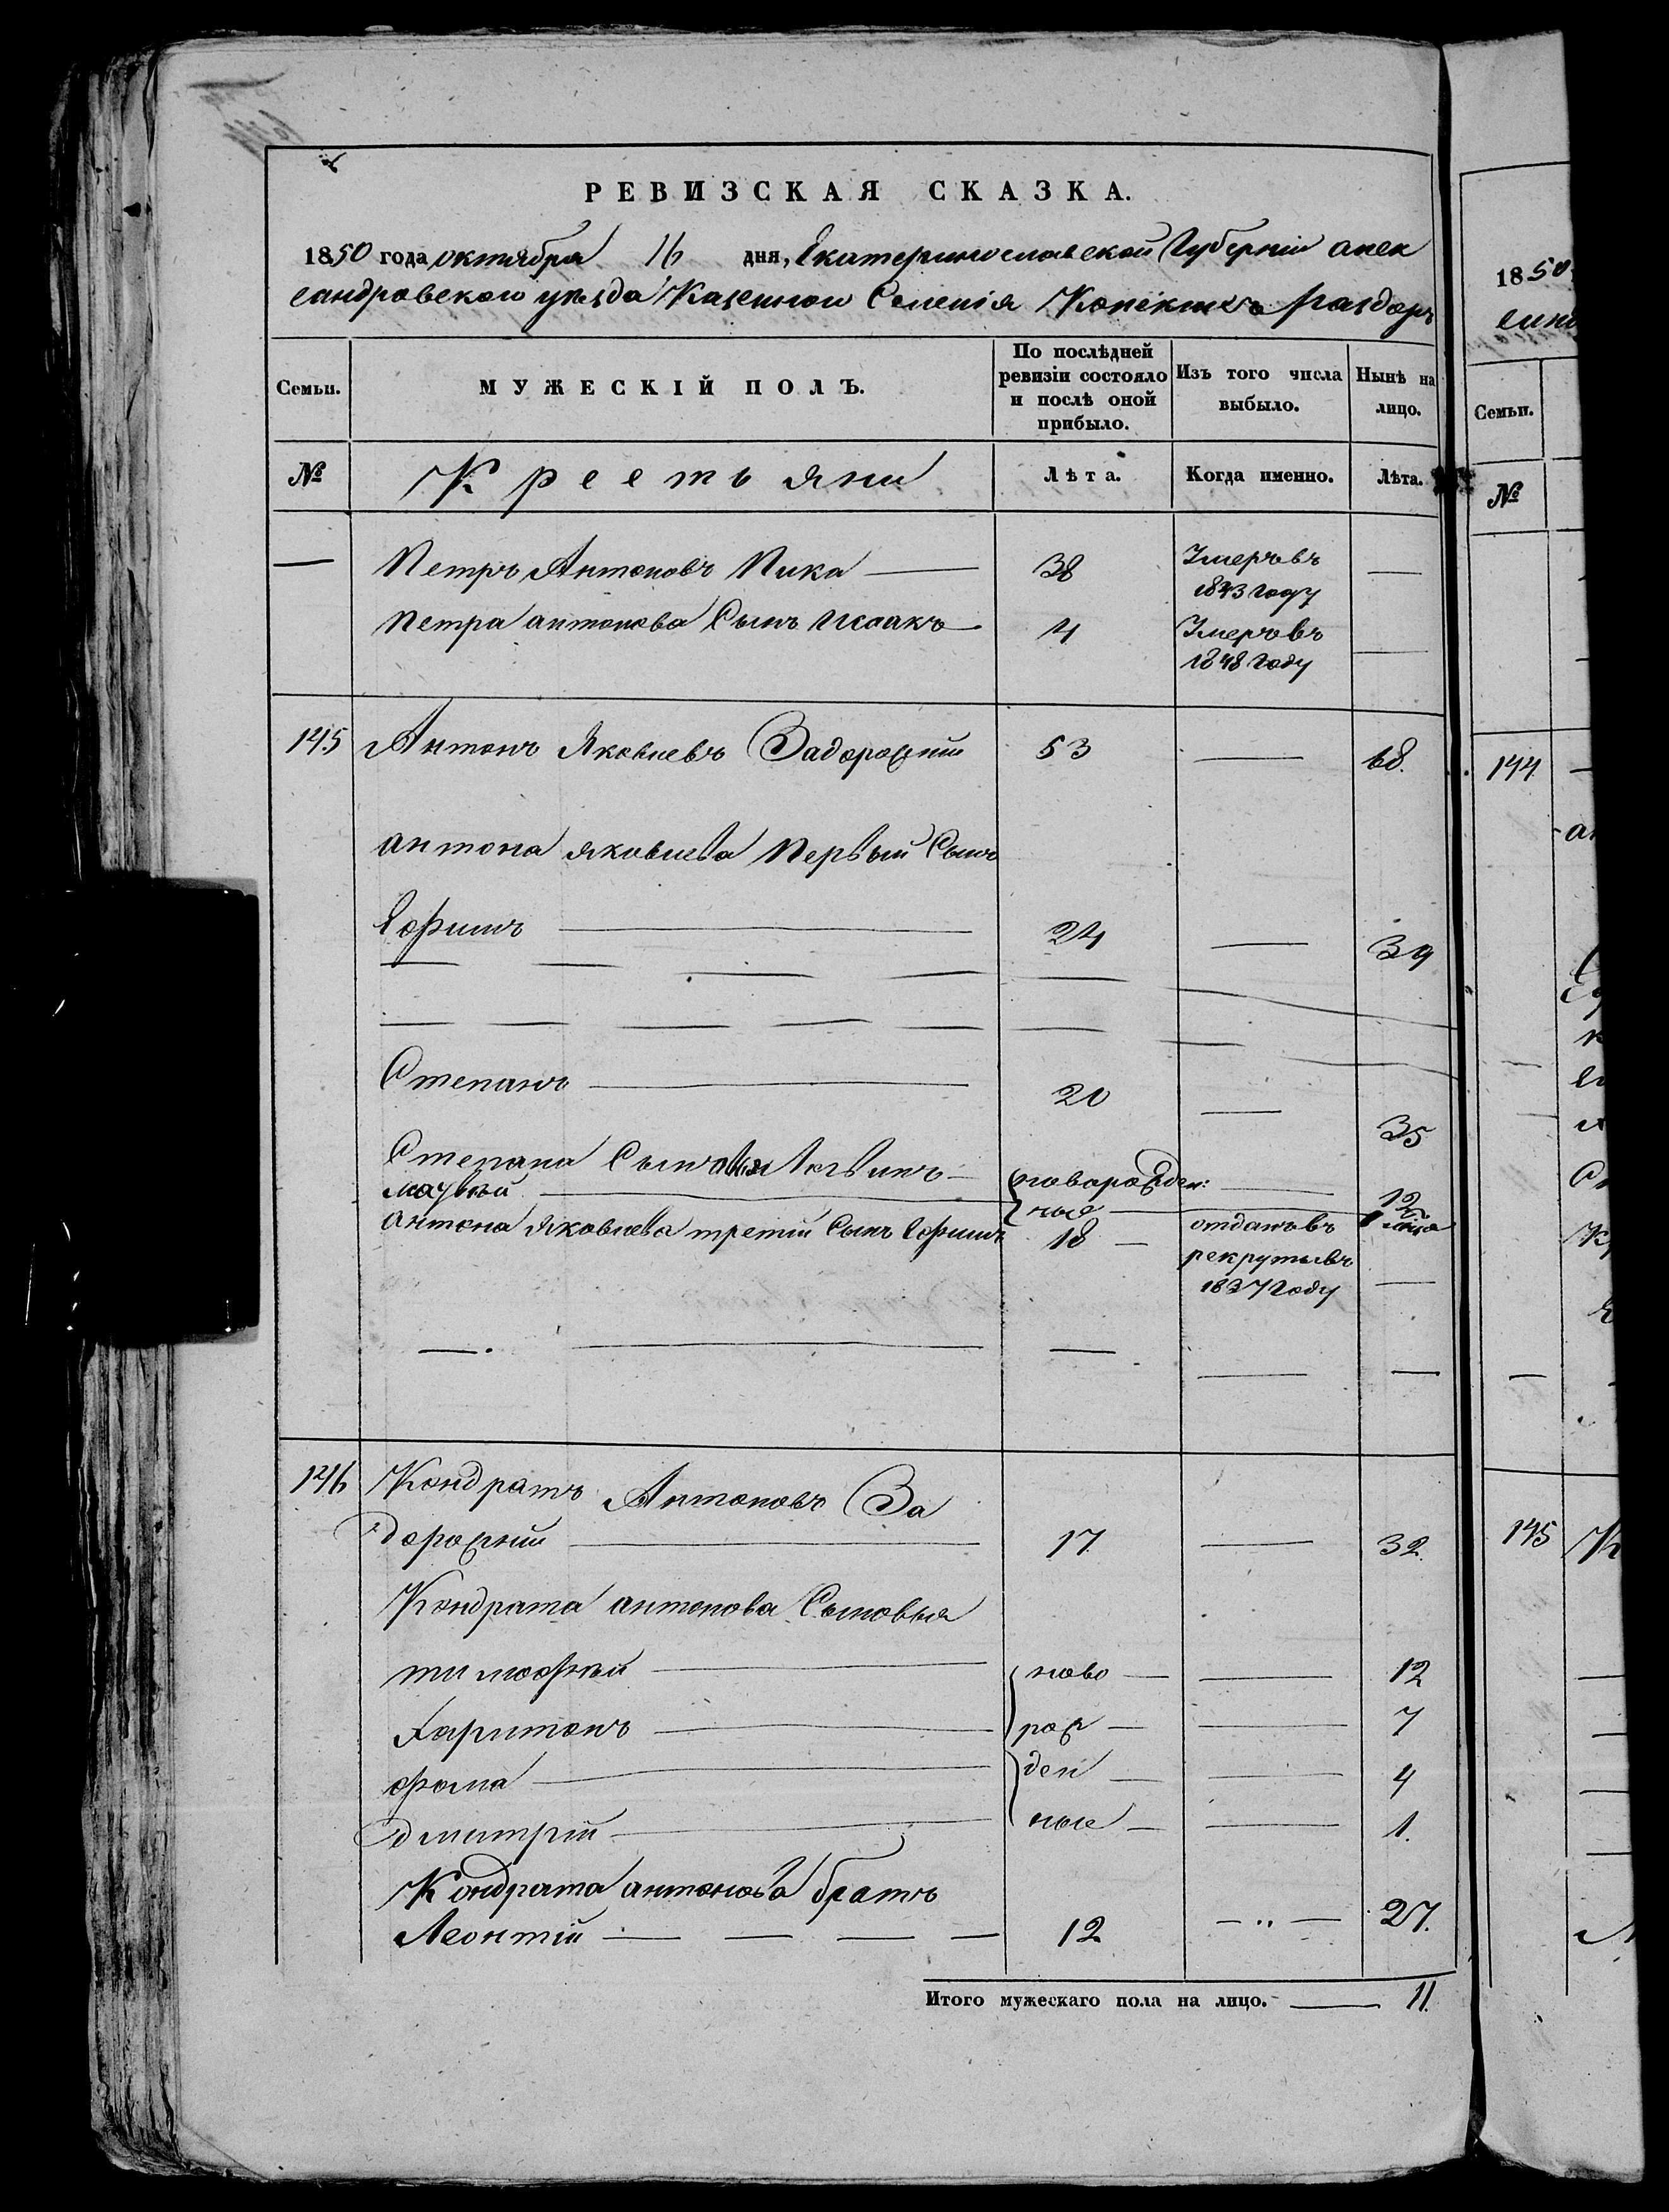 РЕВИЗСКАЯ СКАЗКА.
1850 года октября 16 дня, Екатеринославской Губернiи алек
сандровскои уѣзда Казенной Селенiя Конскихъ Раздоръ
Семьи. МУЖЕСКIЙ ПОЛЪ. По послѣдней ревизiи состояло и послѣ оной прибыло. Изъ того числа выбыло. Нынѣ на лицо.
№ Крестьяни Лѣта. Когда именно. Лѣта.
— Петръ Антоновъ Пика — 38 Умеръ въ 1843 году —
Петра антонова Сынъ Исаакъ — 4 Умеръ въ 1848 году —
145 Антонъ Яковлевъ Задорожнiй 53 — 68.
антона яковлева Первый Сынъ
Ефимъ — 24 — 39
Степанъ — 20 — 35
Степана Сыновья Логвинъ — новорожден: — 12
— ные —
антона яковлева третiй Сынъ Ефимъ 18 — отданъ въ рекруты въ 1837 году —
146 Кондратъ Антоновъ За
дорожнiй — 17 — 32.
Кондрата антонова Сыновья
тимофѣй — ново — — 12
Харитонъ — рож — — 7
фома — ден — — 4
дмитрiй — ные — — 1.
Кондрата антонова братъ
Леонтiй — 12 — 27.
Итого мужескаго пола на лицо. — 11.
1850
Семьи.
№
144
145